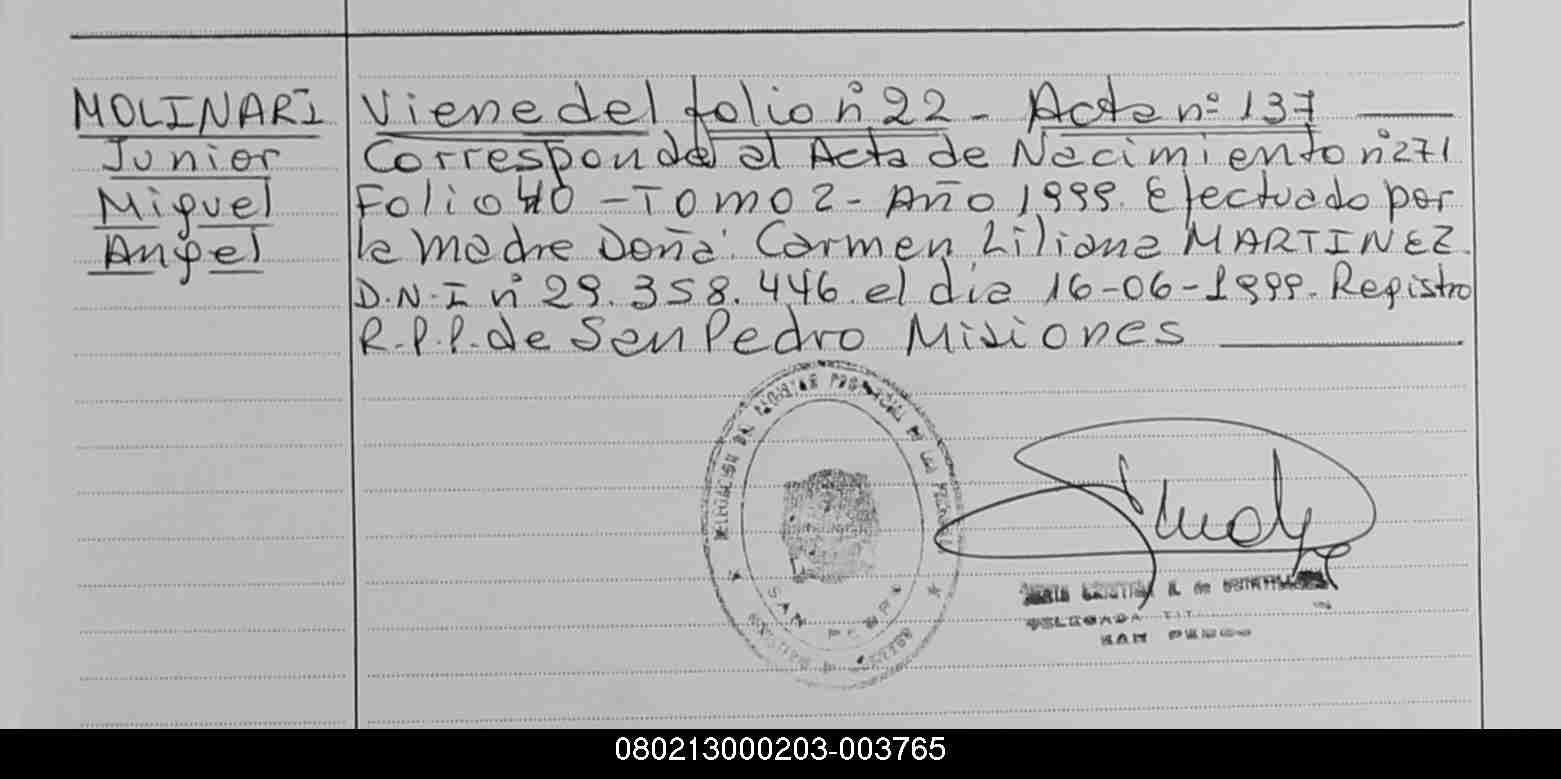 MOLINARI
Junior
Miguel
Angel
Viene del folio nº 22 - Acta nº 137
Corresponde al Acta de Nacimiento nº 271
Folio 40 - Tomo 2 - Año 1999. Efectuado por
la madre Doña: Carmen Liliana MARTINEZ.
D.N.I nº 29.358.446 el día 16-06-1999. Registro
R.P.P. de San Pedro Misiones
DELEGACION DEL REGISTRO PROVINCIAL DE LAS
SAN PEDRO
MISIONES
DELEGADA TIT.
SAN PEDRO
080213000203-003765